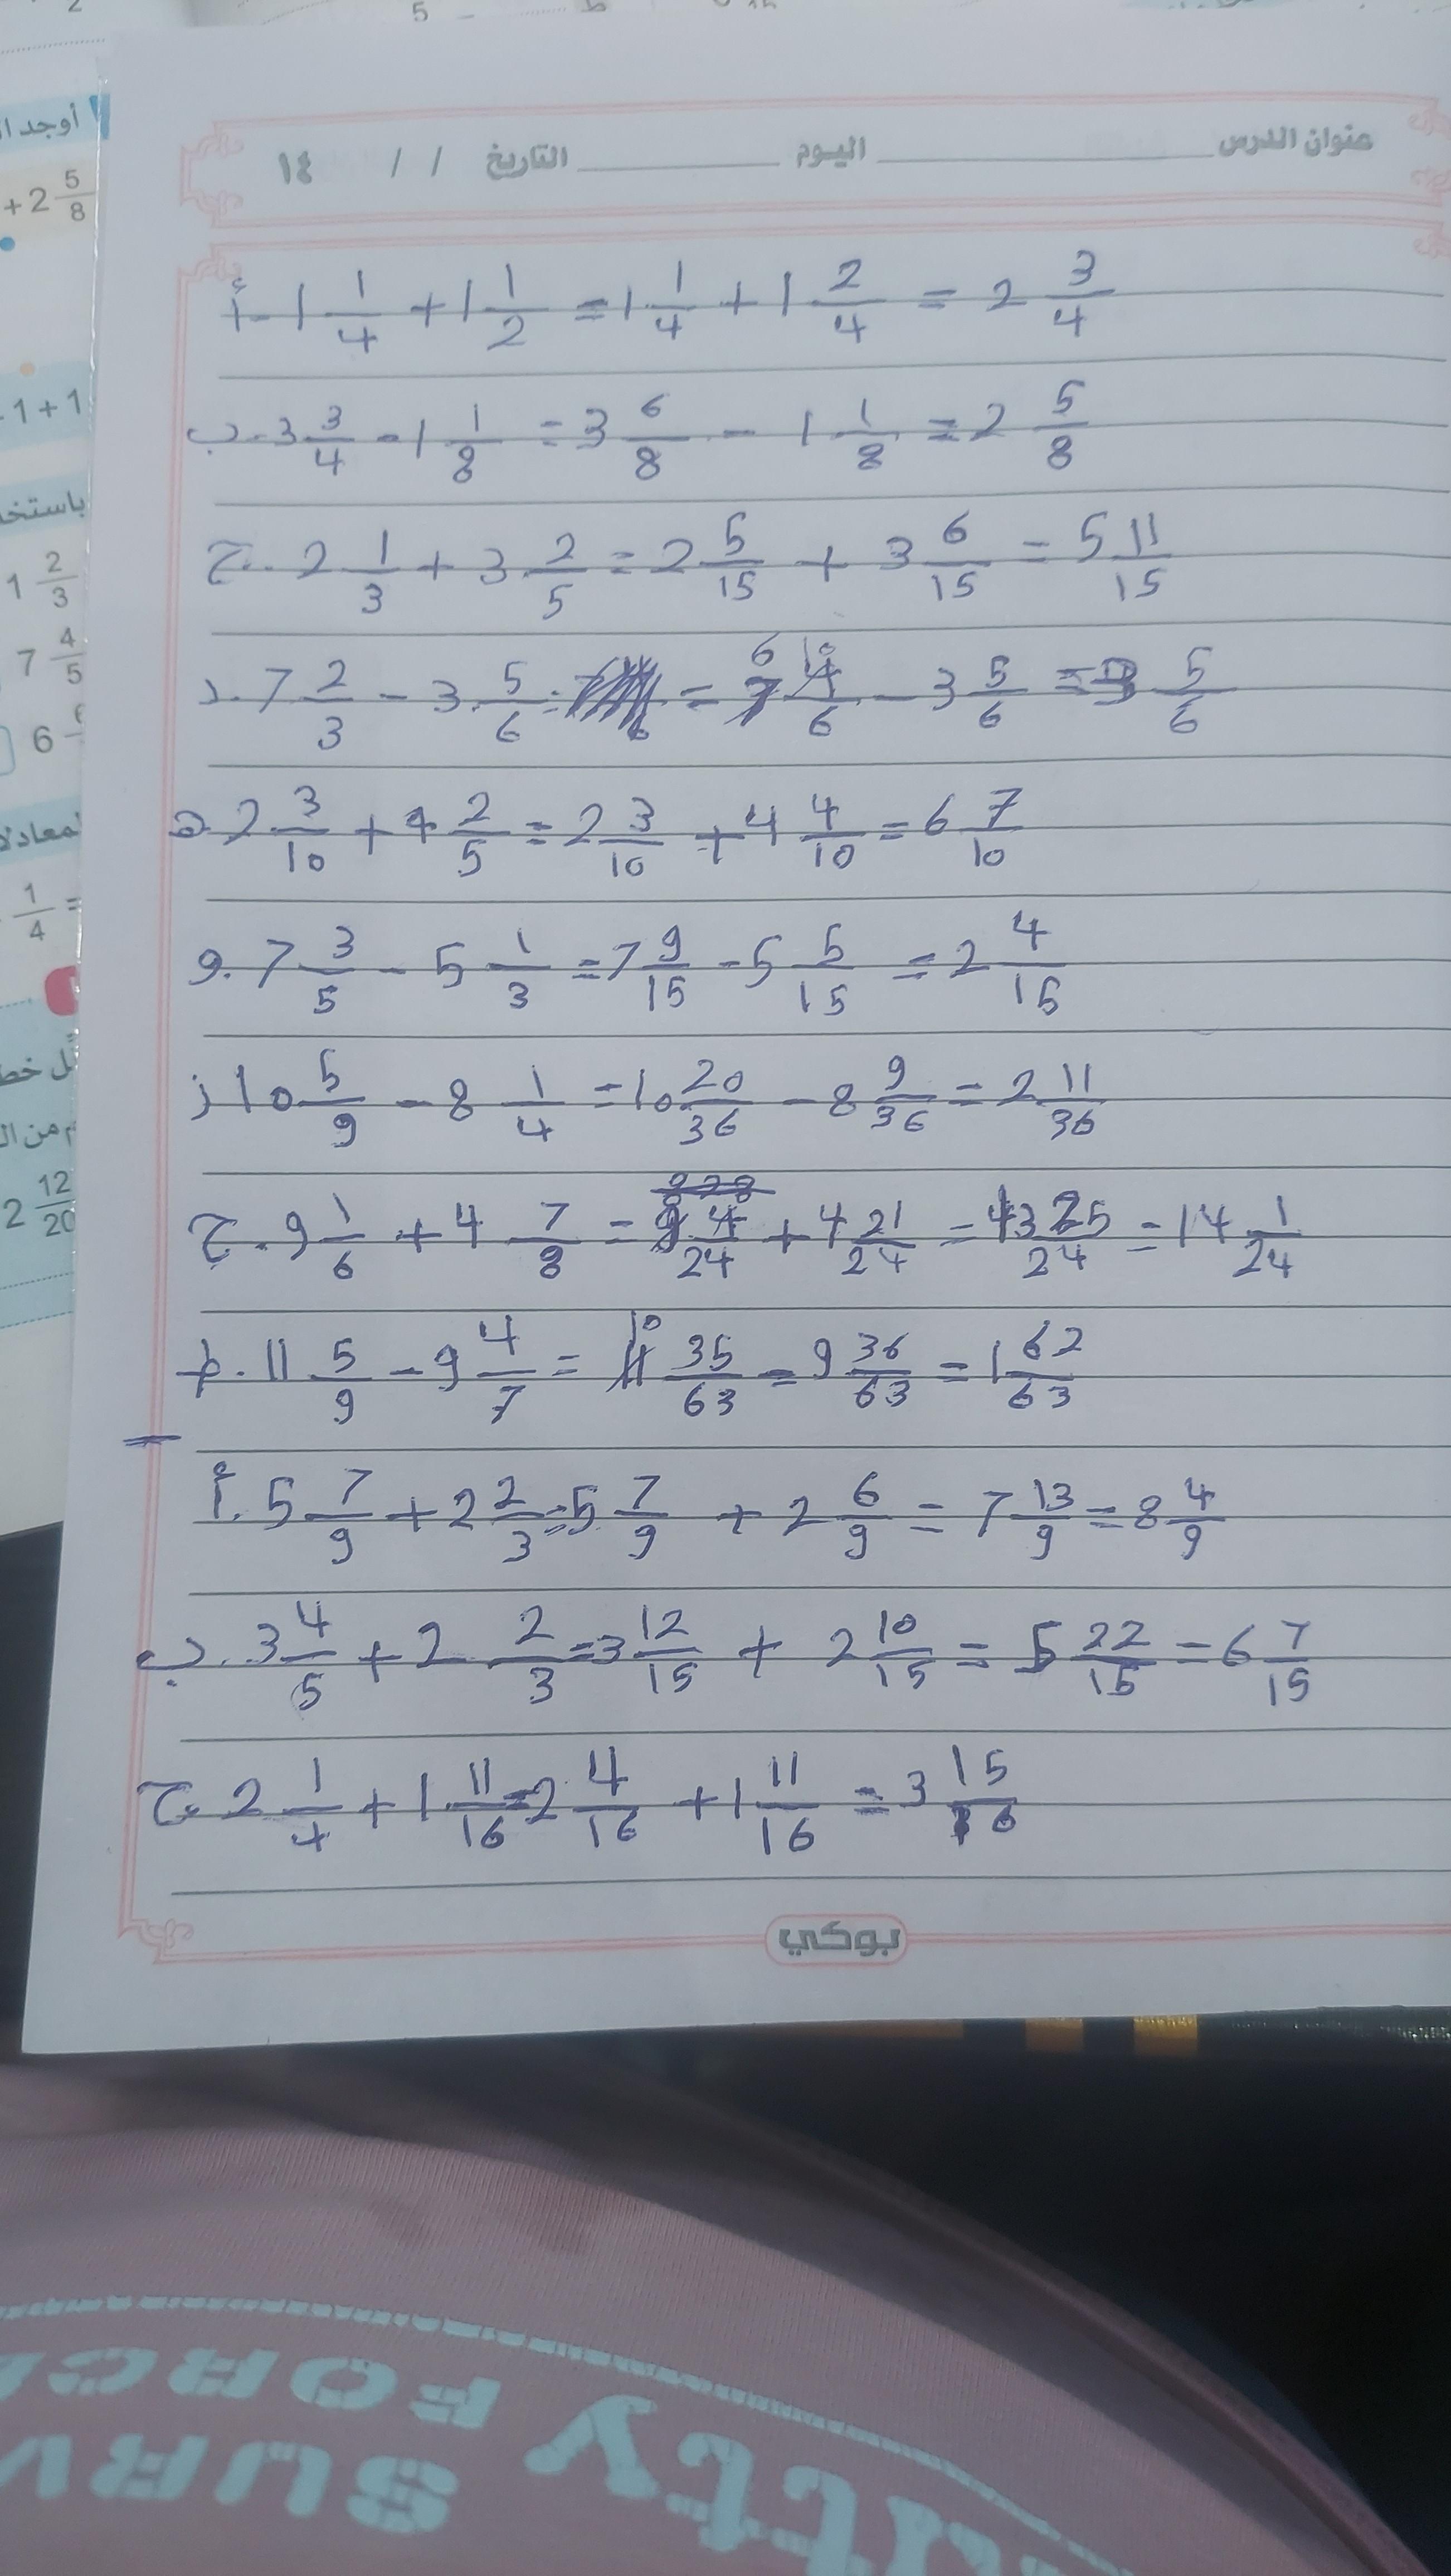 عنوان الدرس اليوم التاريخ / / ١٤
أ- 1 1/4 + 1 1/2 = 1 1/4 + 1 2/4 = 2 3/4
ب. 3 3/4 - 1 1/8 = 3 6/8 - 1 1/8 = 2 5/8
ج. 2 1/3 + 3 2/5 = 2 5/15 + 3 6/15 = 5 11/15
د. 7 2/3 - 3 5/6 = 6 10/6 - 3 5/6 = 3 5/6
ه. 2 3/10 + 4 2/5 = 2 3/10 + 4 4/10 = 6 7/10
و. 7 3/5 - 5 1/3 = 7 9/15 - 5 5/15 = 2 4/15
ز 10 5/9 - 8 1/4 = 10 20/36 - 8 9/36 = 2 11/36
ح. 9 1/6 + 4 7/8 = 9 4/24 + 4 21/24 = 13 25/24 = 14 1/24
ط. 11 5/9 - 9 4/7 = 10 35/63 - 9 36/63 = 1 62/63
أ. 5 7/9 + 2 2/3 = 5 7/9 + 2 6/9 = 7 13/9 = 8 4/9
ب. 3 4/5 + 2 2/3 = 3 12/15 + 2 10/15 = 5 22/15 = 6 7/15
ج. 2 1/4 + 1 11/16 = 2 4/16 + 1 11/16 = 3 15/16
بوكي
أوجد
+ 2 5/8
1 + 1
1 2/3
7 4/5
6
1/4 =
2 12/20
SURV
FORCE